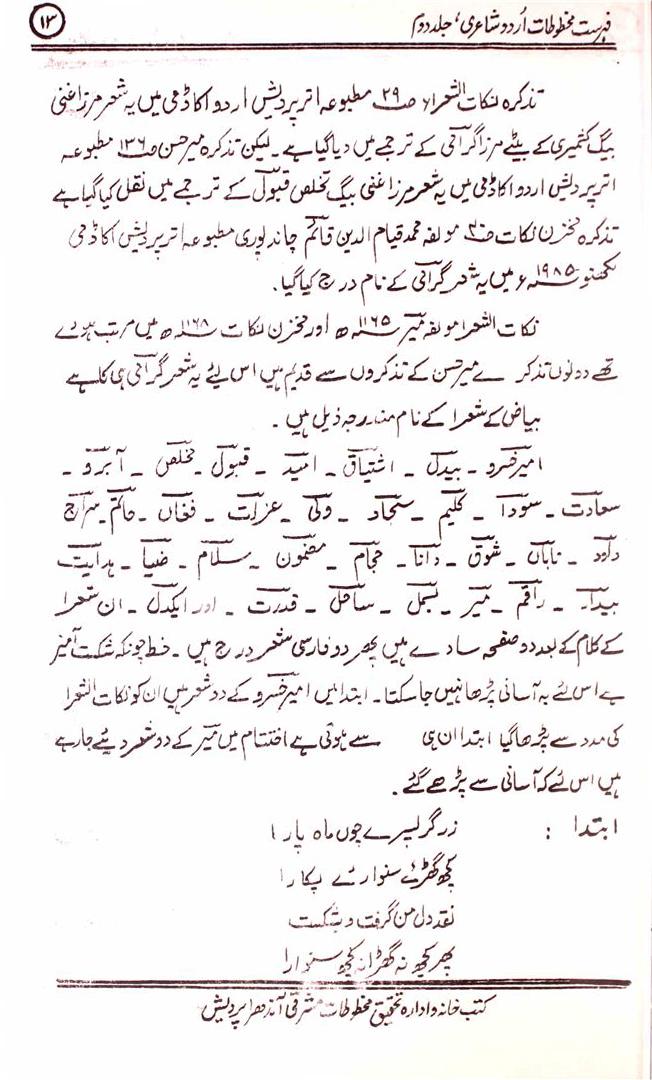 ۱۳
فہرست مخطوطات اُردو شاعری، جلد دوم
تذکرہ نکات الشعراء صہ ۲۹ مطبوعہ اتر پردیش اردو اکاڈمی میں یہ شعر مرزا غنی
بیگ کشمیری کے بیٹے مرزا گرامی کے ترجمے میں دیا گیا ہے۔ لیکن تذکرہ میر حسن صہ ۱۳۶ مطبوعہ
اتر پردیش اردو اکاڈمی میں یہ شعر مرزا غنی بیگ تخلص قبول کے ترجمے میں نقل کیا گیا ہے
تذکرہ مخزن نکات صہ ۳۰ مولفہ محمد قیام الدین قائم چاند پوری مطبوعہ اتر پردیش اکاڈمی
لکھنو ۱۹۸۵ء میں یہ شعر گرامی کے نام درج کیا گیا۔
نکات الشعرا مولفہ میر ۱۱۶۵ھ اور مخزن نکات ۱۱۶۸ھ میں مرتب ہوے
تھے دونوں تذکرے میر حسن کے تذکروں سے قدیم ہیں اس لیے یہ شعر گرامی ہی کا ہے
بیاض کے شعرا کے نام مندرجہ ذیل ہیں۔
امیر خسرو ۔ بیدل ۔ اشتیاق ۔ امید ۔ قبول ۔ مخلص ۔ آبرو ۔
سعادت ۔ سودا ۔ کلیم ۔ سجاد ۔ ولی ۔ عزلت ۔ فغاں ۔ حاکم ۔ سراج
داود ۔ تاباں ۔ شوق ۔ دانا ۔ حجام ۔ مضمون ۔ سلام ۔ ضیا ۔ ہدایت
بیدار ۔ راقم ۔ میر ۔ بسمل ۔ ساحل ۔ قدرت ۔ اور ایکدل ۔ ان شعرا
کے کلام کے بعد دو صفحہ سادے ہیں پھر دو فارسی شعر درج ہیں ۔ خط چونکہ شکست آمیز
ہے اس لئے بہ آسانی پڑھا نہیں جا سکتا۔ ابتدا میں امیر خسرو کے دو شعر ہیں ان کو نکات الشعرا
کی مدد سے پڑھا گیا ابتدا ان ہی سے ہوئی ہے اختتام میں میر کے دو شعر دیئے جا رہے
ہیں اس لئے کہ آسانی سے پڑھے گئے۔
ابتدا : زرگر پسرے چوں ماہ پارا
کچھ گھڑئے سنوارئے پکارا
نقد دل من گرفت و بشکست
پھر کچھ نہ گھڑا نہ کچھ سنوارا
کتب خانہ و ادارہ تحقیق مخطوطات مشرقی آندھرا پردیش